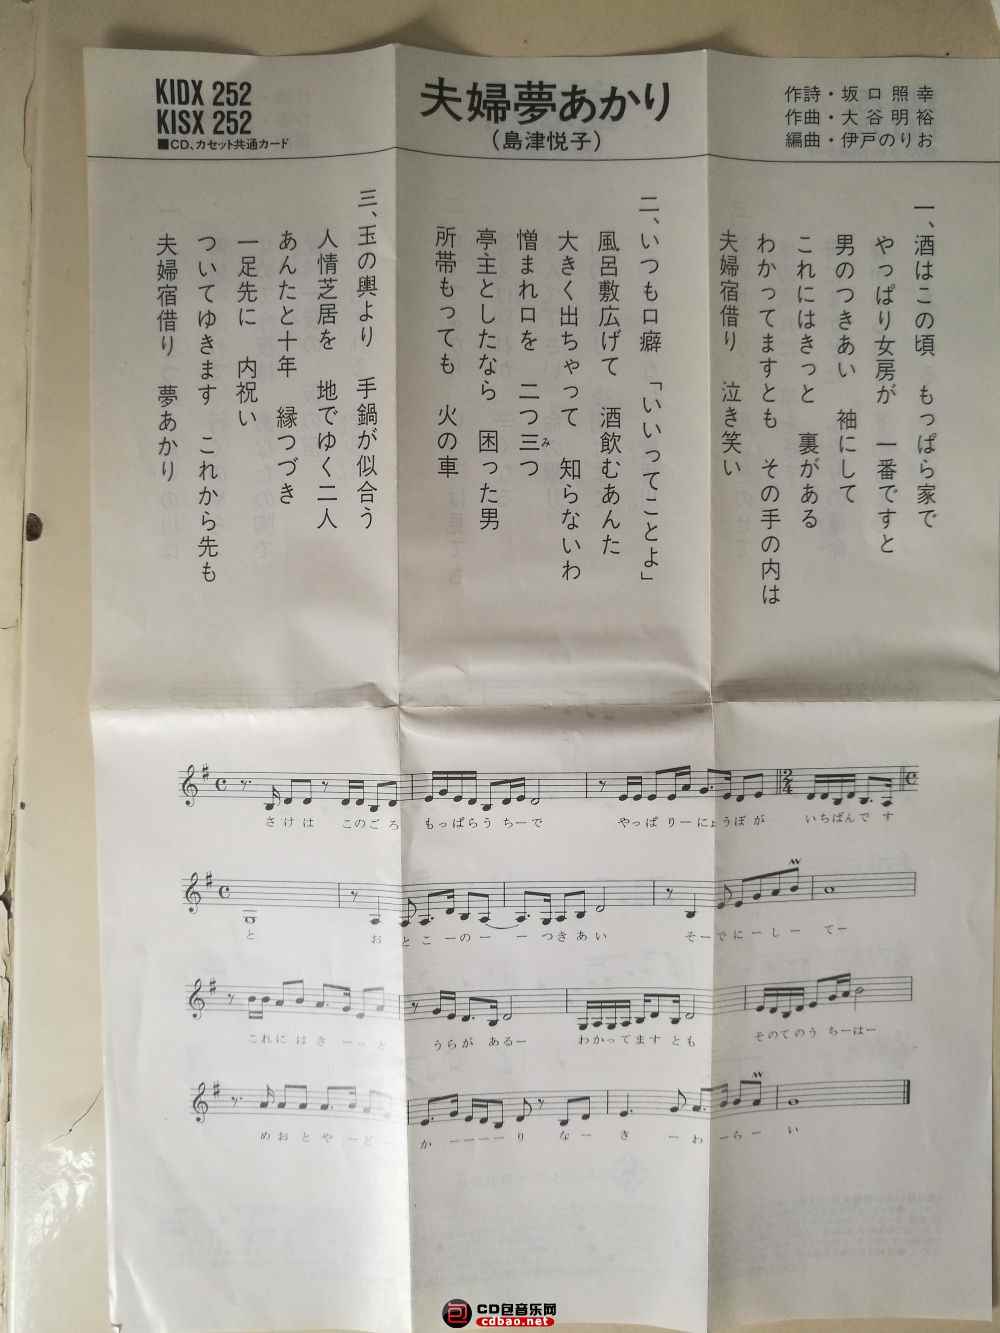 KIDX 252
KISX 252
■CD、カセット共通カード
夫婦夢あかり
(島津悦子)
作詩・坂口照幸
作曲・大谷明裕
編曲・伊戸のりお
一、酒はこの頃 もっぱら家で
やっぱり女房が 一番ですと
男のつきあい 袖にして
これにはきっと 裏がある
わかってますとも その手の内は
夫婦宿借り 泣き笑い
二、いつも口癖 「いいってことよ」
風呂敷広げて 酒飲むあんた
大きく出ちゃって 知らないわ
憎まれ口を 二つ三つ
み
亭主としたなら 困った男
所帯もっても 火の車
三、玉の輿より 手鍋が似合う
人情芝居を 地でゆく二人
あんたと十年 縁つづき
一足先に 内祝い
ついてゆきます これから先も
夫婦宿借り 夢あかり
さけは このごろ もっぱらう ちーで やっぱ りーにょうぼが いちばんです
と おとこーのー ーつきあい そーでにーしー てー
これに はきーっと うらが あるー わかってますとも そのてのう ちーはー
めおとやーどー かーーーーり なー き ーわーらー い
CD包音乐网
cdbao.net